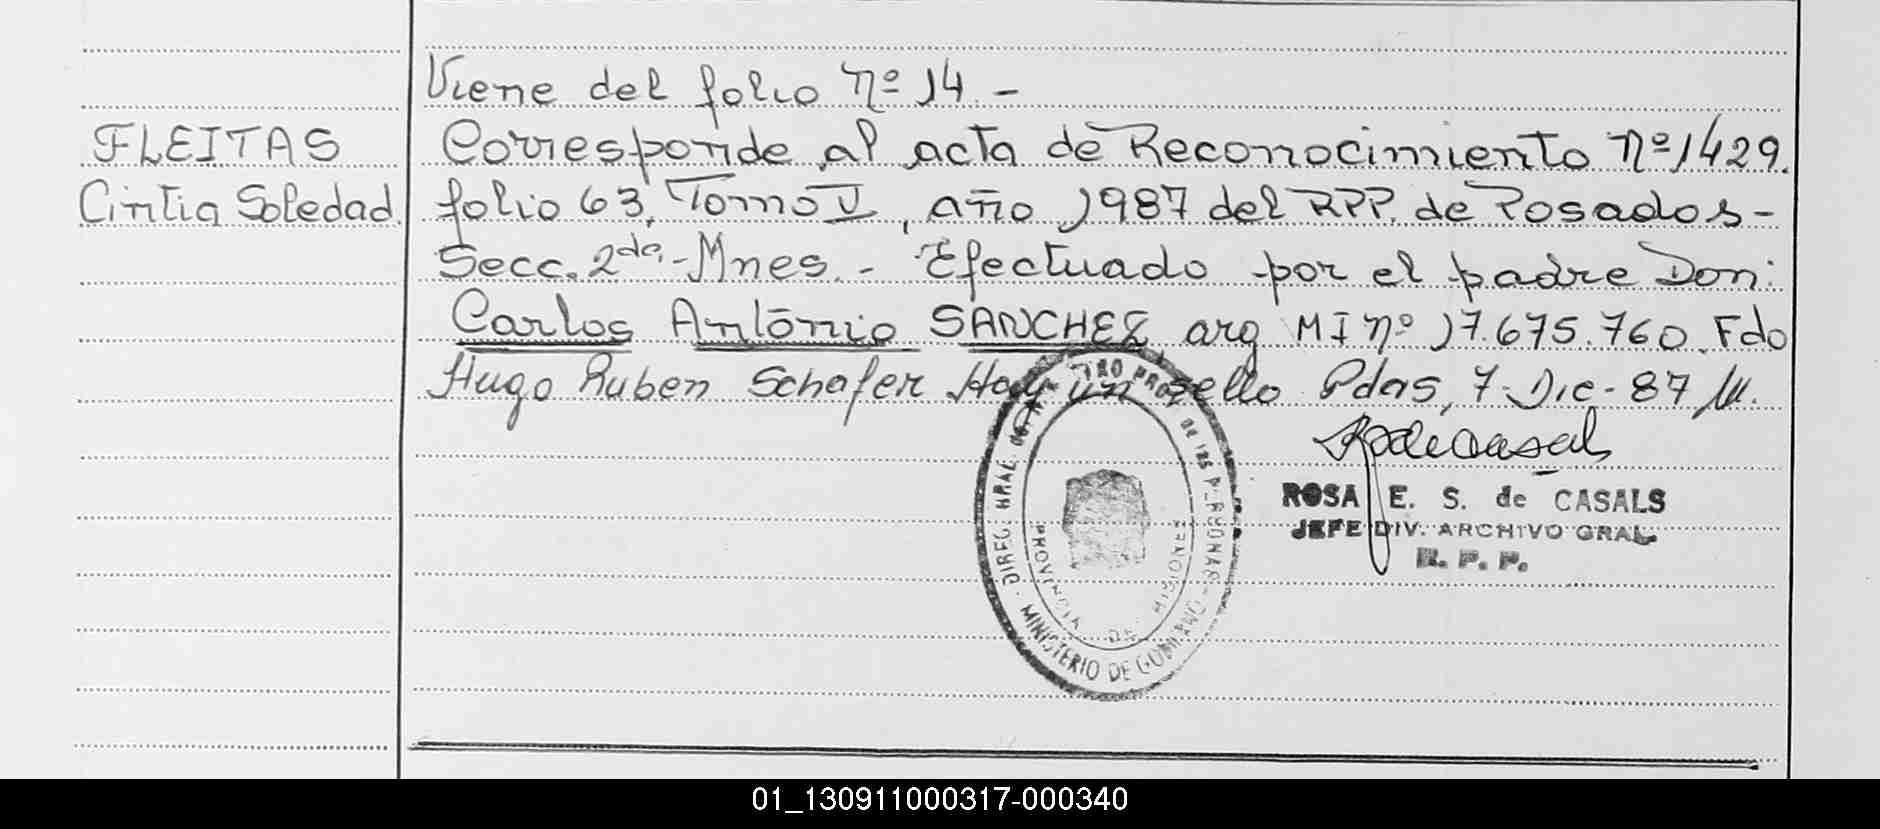 Viene del folio Nº 14 -
FLEITAS
Cintia Soledad.
Corresponde al acta de Reconocimiento Nº 1429.
folio 63, Tomo V, año 1987 del RPP. de Posadas-
Secc. 2da.-Mnes. - Efectuado por el padre Don:
Carlos Antonio SANCHEZ arg MI Nº 17.675.760. Fdo
Hugo Ruben Schafer Hay un sello Pdas, 7-Dic-87
ROSA E. S. de CASALS
JEFE DIV. ARCHIVO GRAL
R. P. P.
DIREC. GRAL. DE
PROVINCIA DE MISIONES
MINISTERIO DE GOBIERNO
01_130911000317-000340